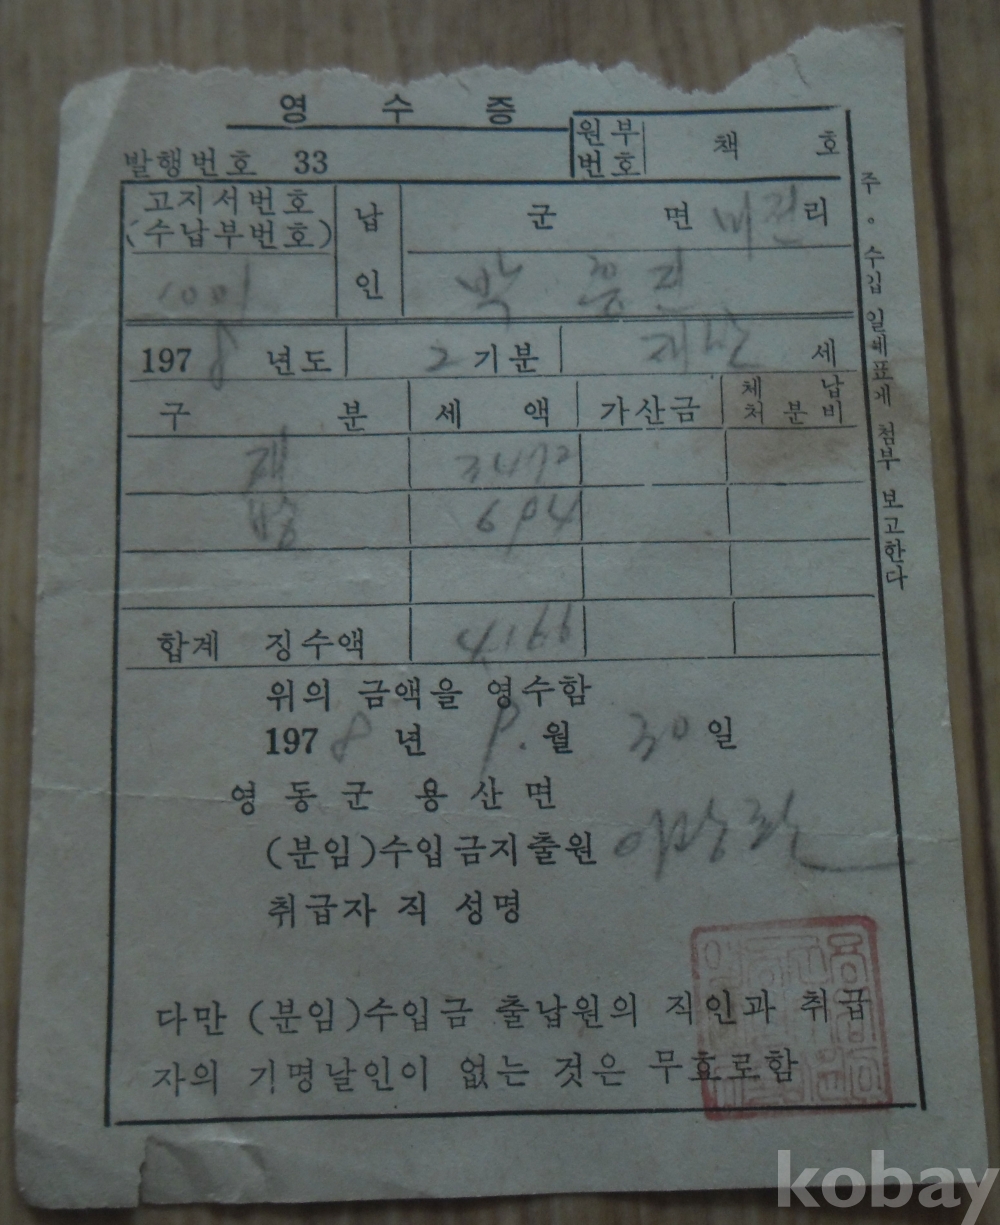 영 수 증
발행번호 33
원부번호 책 호
고지서번호
(수납부번호)
납인
군 면 리
박
1978 년도 2 기분 재산 세
구 분 세 액 가산금 체납처분비
재 3472
방 694
합계 징수액 4,166
위의 금액을 영수함
1978 년 9. 월 30 일
영동군 용산면
(분임)수입금지출원
취급자 직 성명
다만 (분임)수입금 출납원의 직인과 취급
자의 기명날인이 없는 것은 무효로함
주。수입 일계표에 첨부 보고한다
kobay